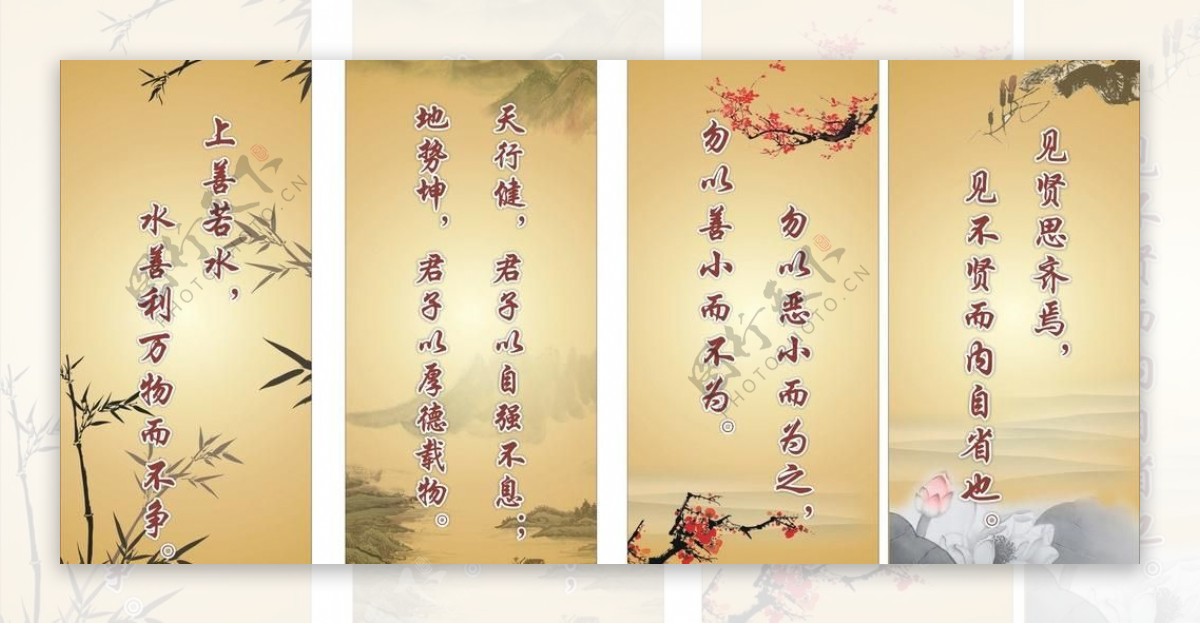 上善若水，
水善利万物而不争。
天行健，君子以自强不息；
地势坤，君子以厚德载物。
勿以恶小而为之，
勿以善小而不为。
见贤思齐焉，
见不贤而内自省也。
图行天下
PHOTOPHOTO.CN
图行天下
PHOTOPHOTO.CN